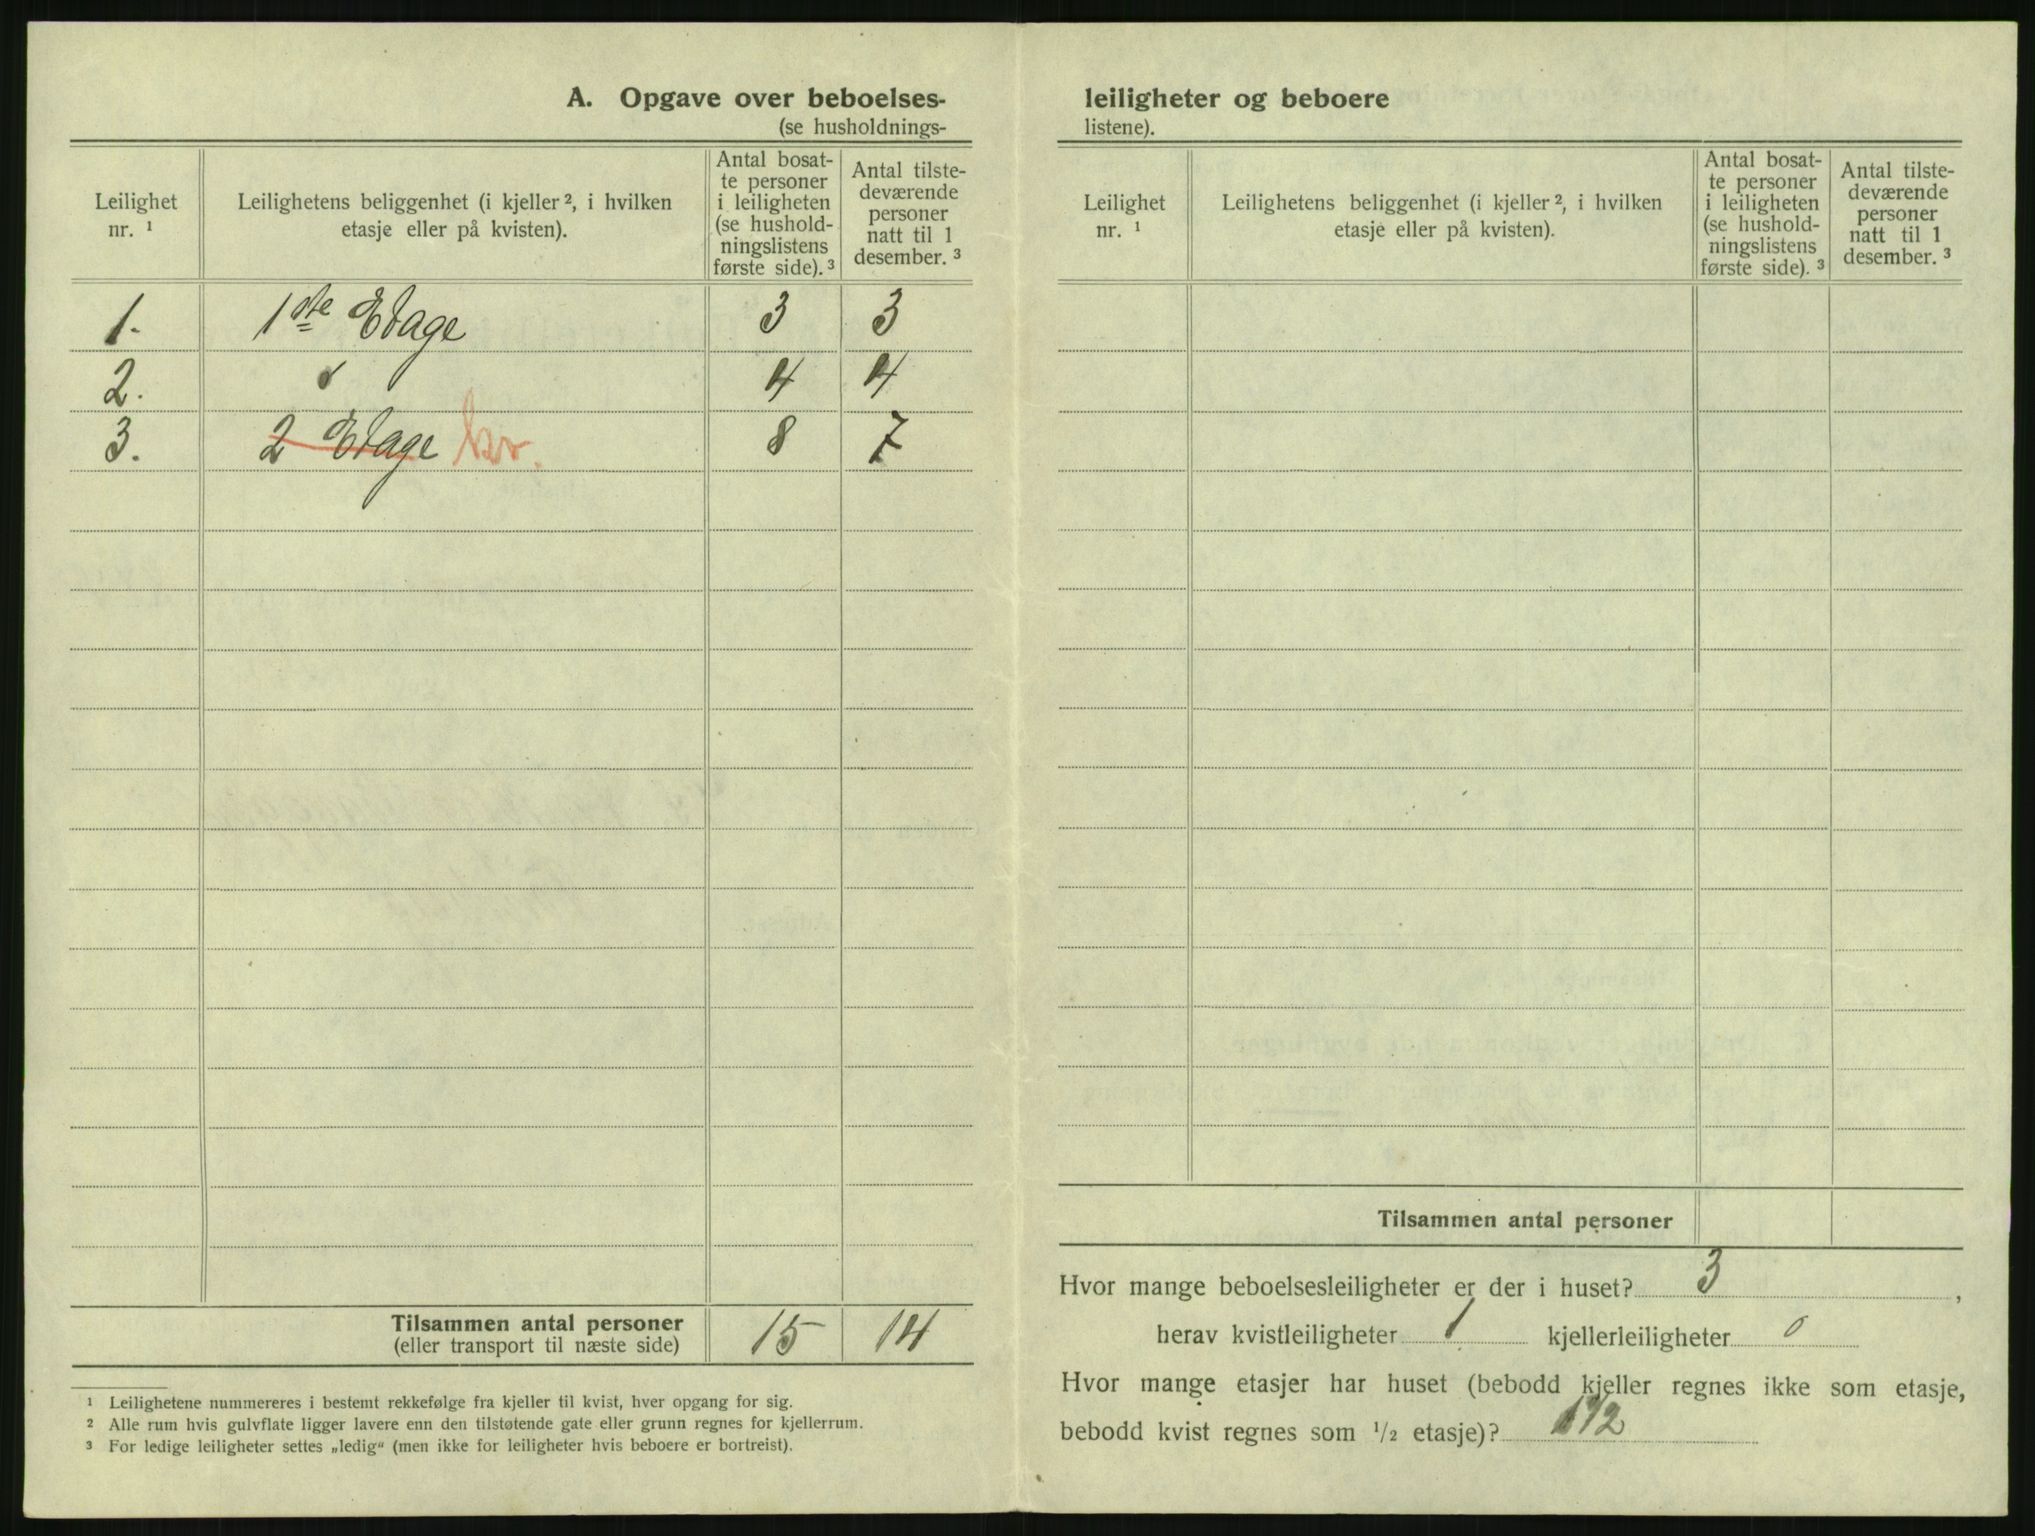 A. Opgave over beboelses-
(se husholdnings-
Leilighet nr. ¹
Leilighetens beliggenhet (i kjeller ², i hvilken etasje eller på kvisten).
Antal bosatte personer i leiligheten (se husholdningslistens første side). ³
Antal tilstedeværende personer natt til 1 desember. ³
1. 1ste Etage 3 3
2. 4 4
3. 2 Etage kv. 8 7
Tilsammen antal personer 15 14
(eller transport til næste side)
¹ Leilighetene nummereres i bestemt rekkefølge fra kjeller til kvist, hver opgang for sig.
² Alle rum hvis gulvflate ligger lavere enn den tilstøtende gate eller grunn regnes for kjellerrum.
³ For ledige leiligheter settes „ledig“ (men ikke for leiligheter hvis beboere er bortreist).
leiligheter og beboere
listene).
Leilighet nr. ¹
Leilighetens beliggenhet (i kjeller ², i hvilken etasje eller på kvisten).
Antal bosatte personer i leiligheten (se husholdningslistens første side). ³
Antal tilstedeværende personer natt til 1 desember. ³
Tilsammen antal personer
Hvor mange beboelsesleiligheter er der i huset? 3,
herav kvistleiligheter 1 kjellerleiligheter 0
Hvor mange etasjer har huset (bebodd kjeller regnes ikke som etasje,
bebodd kvist regnes som 1/2 etasje)? 1 1/2